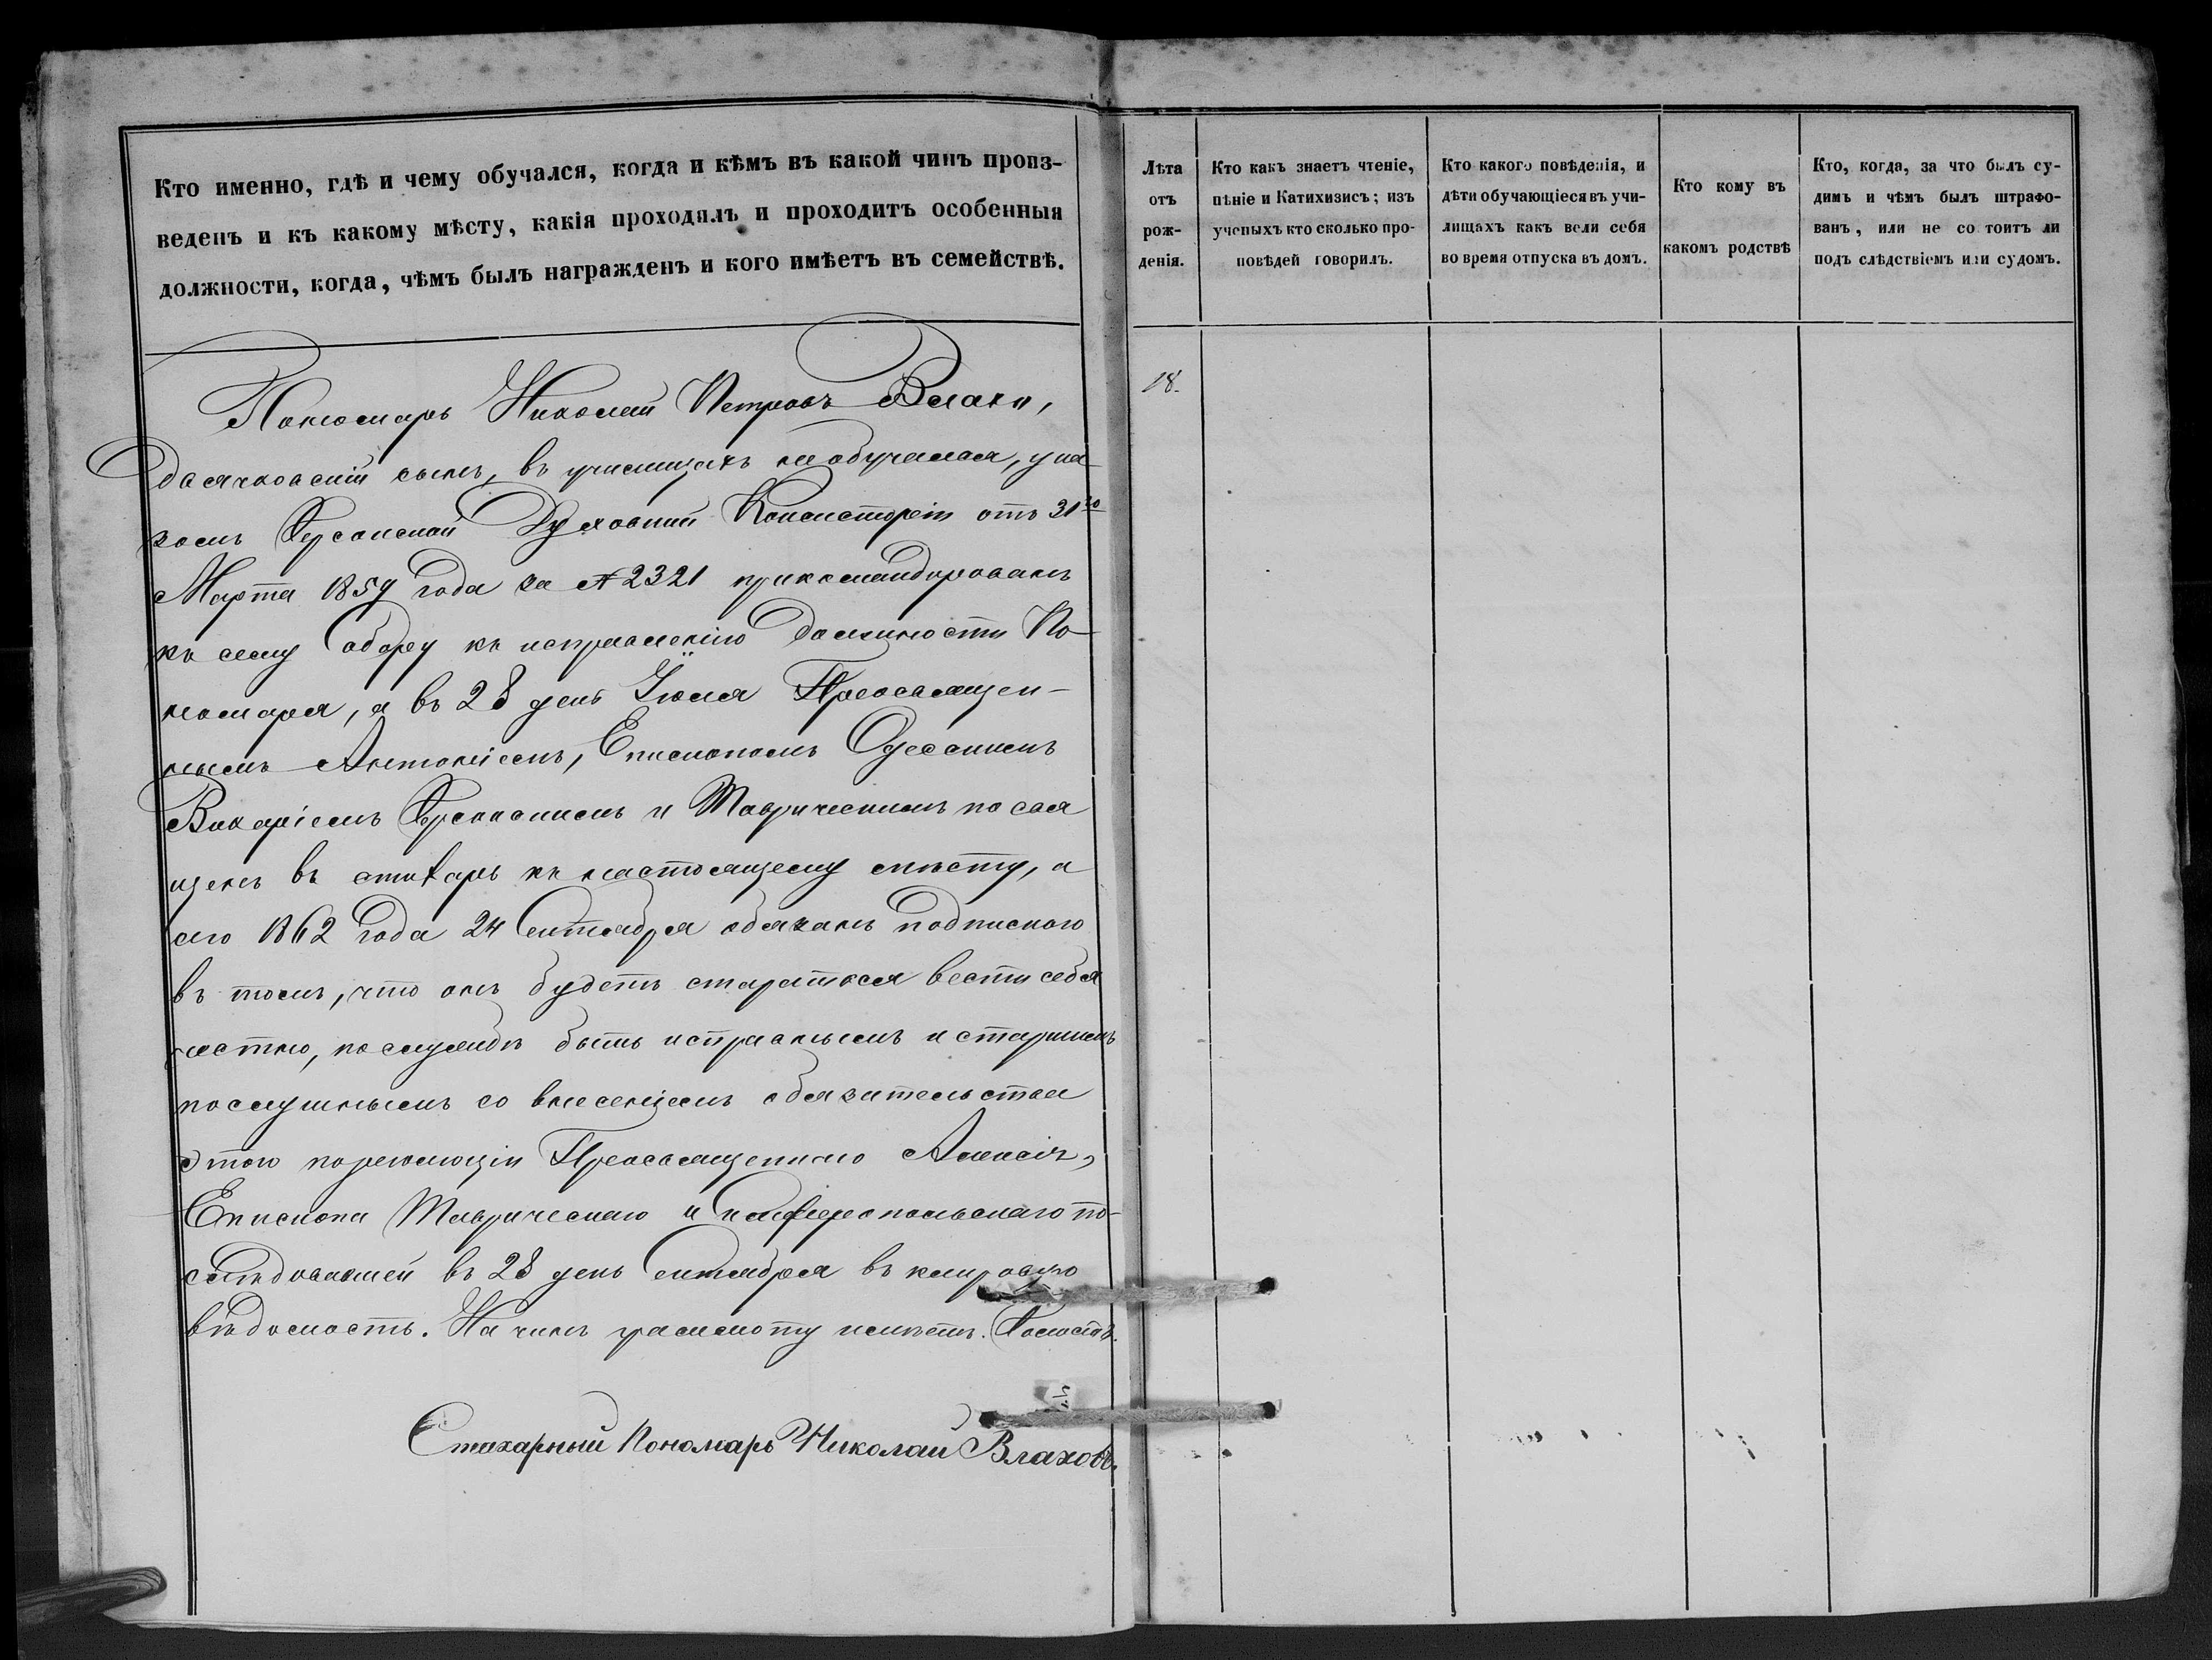 Кто именно, гдѣ и чему обучался, когда и кѣмъ въ какой чинъ произ-
веденъ и къ какому мѣсту, какія проходилъ и проходитъ особенныя
должности, когда, чѣмъ былъ награжденъ и кого имѣетъ въ семействѣ.
Пономарь Николай Петровъ Влахи,
дьячковскій сынъ, въ училищахъ необучался, ука-
зомъ Херсонской Духовной Консисторіи отъ 31го
Марта 1859 года за № 2321 прикомандированъ
къ сему Собору къ исправленію должности По-
номаря, а въ 28 день Іюля Преосвящен-
нымъ Антоніемъ, Епископомъ Одесскимъ
Викаріемъ Херсонскимъ и Таврическимъ посвя
щенъ въ стихарь къ настоящему мѣсту, а
сего 1862 года 24 Сентября обязанъ подпискою
въ томъ, что онъ будетъ стараться вести себя
честно, по службѣ быть исправнымъ и старшимъ
послушнымъ со внесеніемъ обязательства
этого по резолюціи Преосвященнаго Алексія,
Епископа Таврическаго и Симферопольскаго по-
слѣдовавшей въ 28 день Сентября въ клировую
вѣдомость. На чинъ грамоту имѣетъ. Холостъ.
Стихарный Пономарь Николай Влаховъ.
Лѣта
отъ
рож-
денія.
Кто какъ знаетъ чтеніе,
пѣніе и Катихизисъ; изъ
ученыхъ кто сколько про-
повѣдей говорилъ.
Кто какого повѣденія, и
дѣти обучающіеся въ учи-
лищахъ какъ вели себя
во время отпуска въ домъ.
Кто кому въ
какомъ родствѣ
Кто, когда, за что былъ су-
димъ и чѣмъ былъ штрафо-
ванъ, или не состоитъ ли
подъ слѣдствіемъ или судомъ.
18.